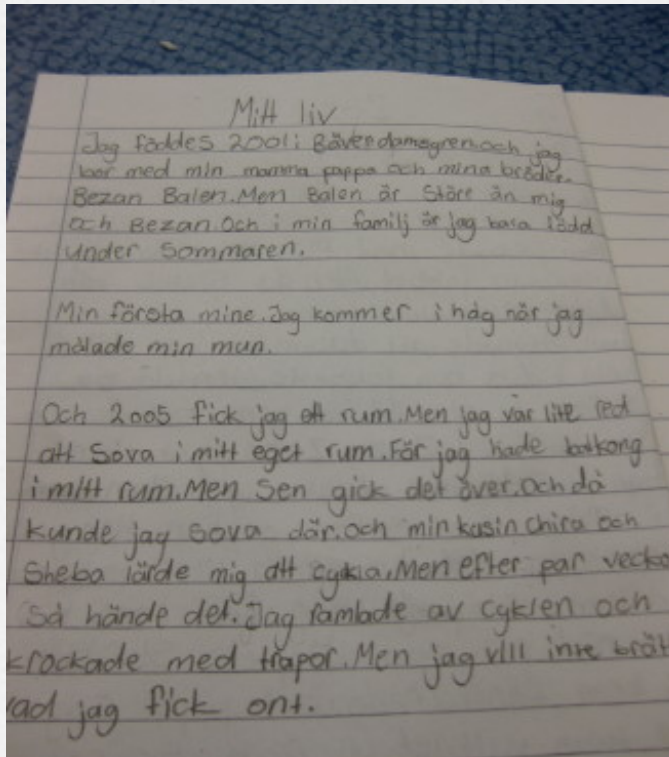 Mitt liv
Jag föddes 2001 i Bäverdamsgren.och jag
bor med min mamma pappa och mina bröder.
Bezan Balen.Men Balen är Störe än mig
och Bezan.Och i min familj är jag bara född
under Sommaren.
Min första mine.Jag kommer i håg när jag
målade min mun.
Och 2005 fick jag ett rum.Men jag var lite red
att Sova i mitt eget rum.För jag hade balkong
i mitt rum.Men Sen gick det över.Och då
kunde jag Sova där.och min kusin Chira och
Sheba lärde mig att cykla.Men efter par vecko
Så hände det.Jag ramlade av cyklen och
krockade med trapor.Men jag vill inte brät
vad jag fick ont.